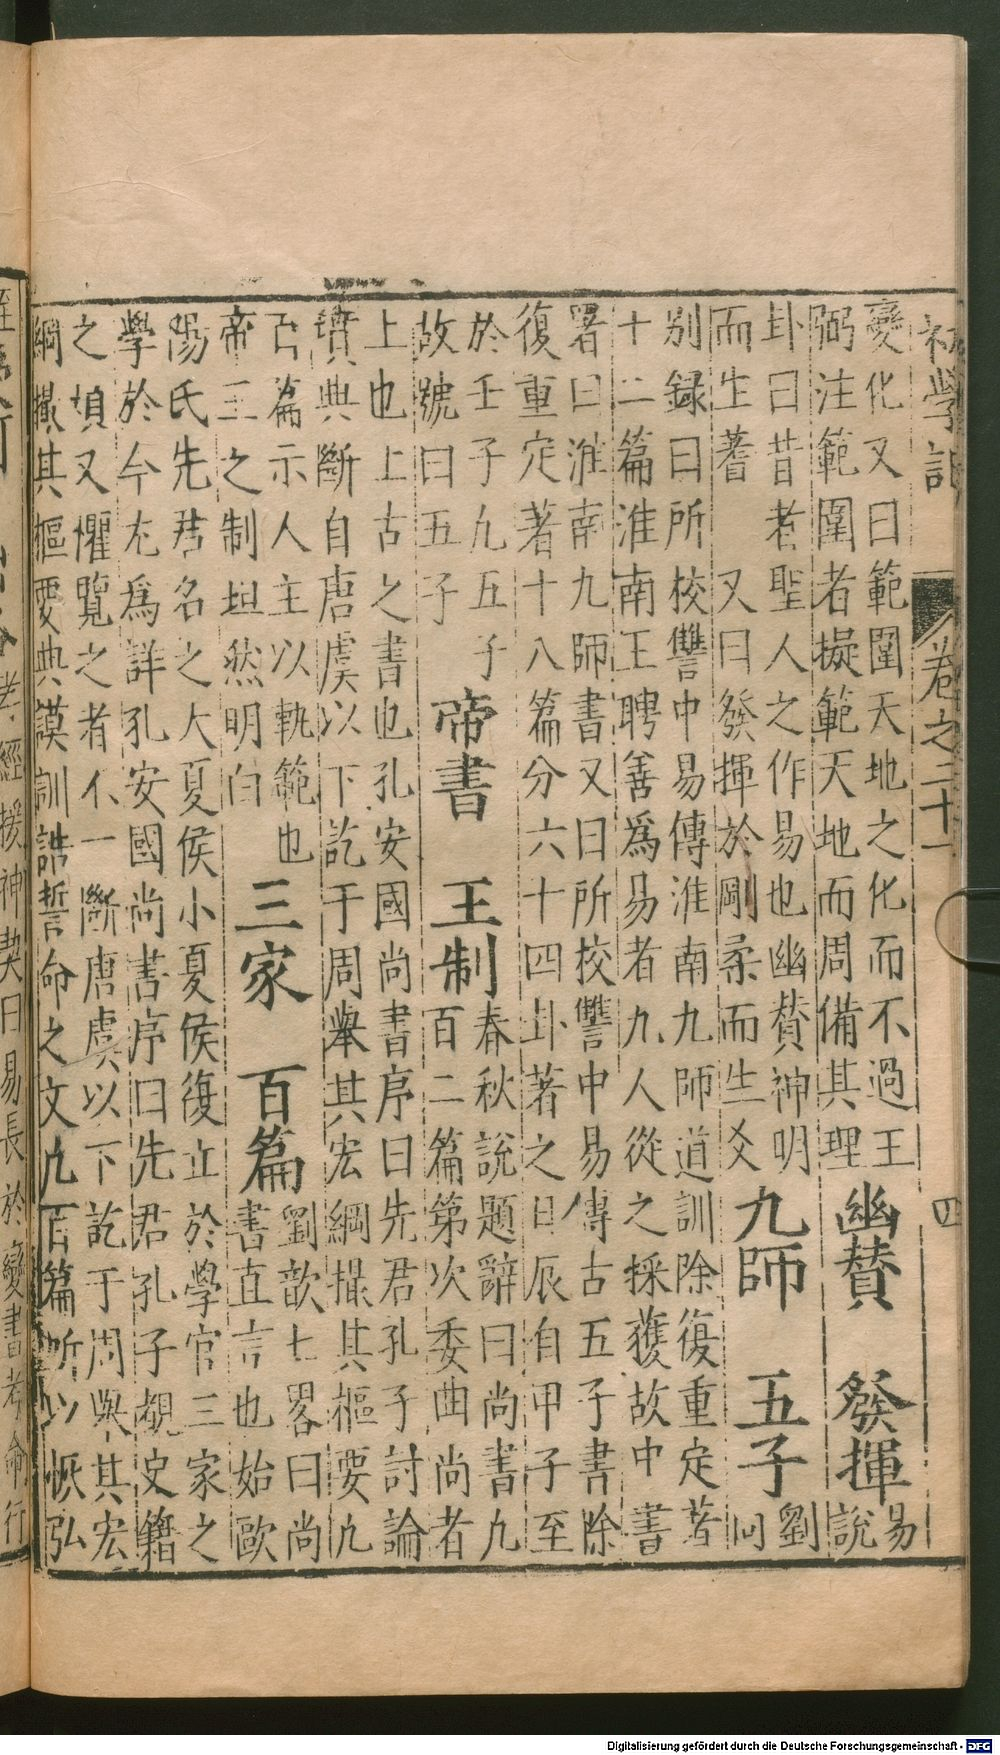 初學記 卷之二十一 四
變化又曰範圍天地之化而不過王
弼注範圍者擬範天地而周備其理
幽贊 發揮
易
說
卦曰昔者聖人之作易也幽贊神明
而生蓍 又曰發揮於剛柔而生爻
九師 五子
劉
向
別録曰所校讐中易傳淮南九師道訓除復重定著
十二篇淮南王聘善爲易者九人從之採獲故中書
署曰淮南九師書又曰所校讐中易傳古五子書除
復重定著十八篇分六十四卦著之日辰自甲子至
於壬子凡五子
故號曰五子
帝書 王制
春秋説題辭曰尚書凡
百二篇第次委曲尚者
上也上古之書也孔安國尚書序曰先君孔子討論
墳典斷自唐虞以下訖于周舉其宏綱撮其樞要凡
百篇示人主以軌範也
帝三之制坦然明白
三家 百篇
劉歆七畧曰尚
書直言也始歐
陽氏先君名之大夏侯小夏侯復立於學官三家之
學於今尤爲詳孔安國尚書序曰先君孔子覩史籍
之煩又懼覽之者不一斷唐虞以下訖于周舉其宏
綱撮其樞要典謨訓誥誓命之文凡百篇所以恢弘
考經援神契曰易長於變書考命行
Digitalisierung gefördert durch die Deutsche Forschungsgemeinschaft - DFG